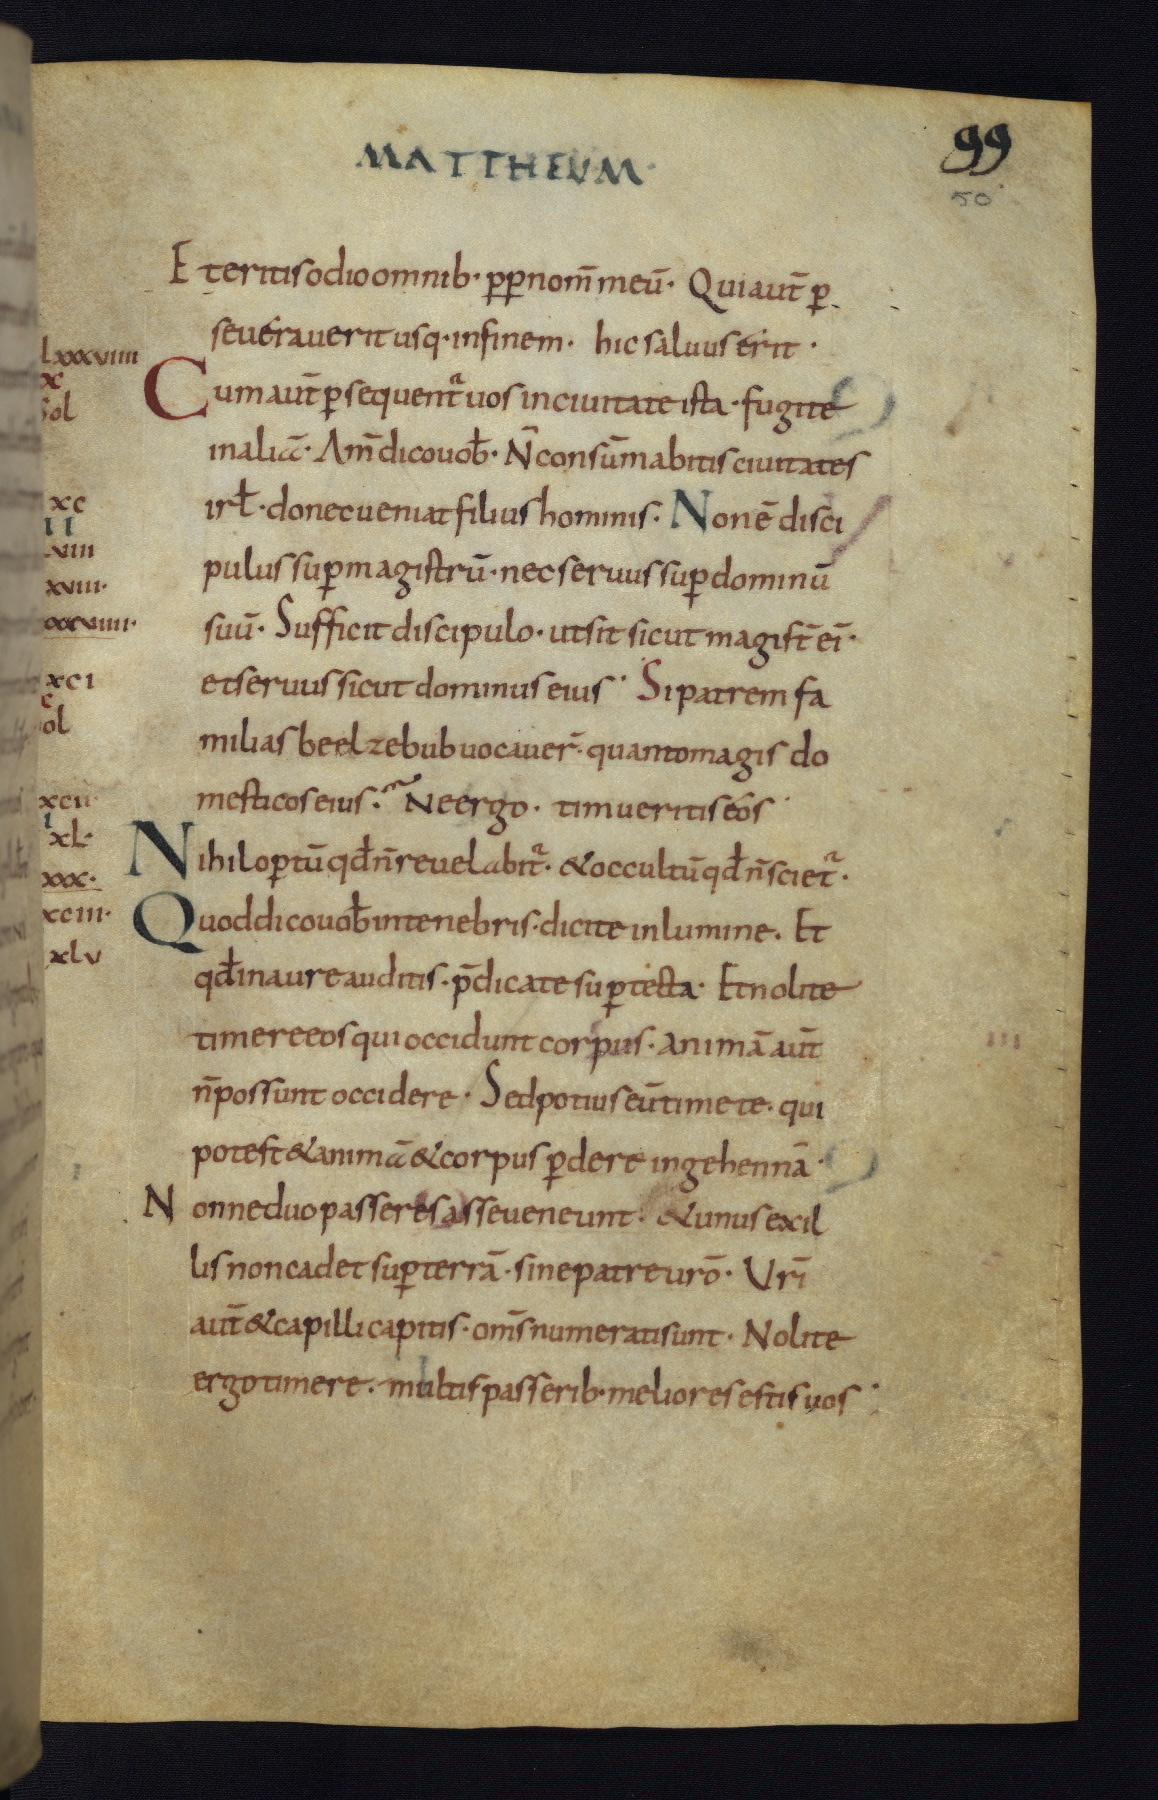 MATTHEUM·
99
50
Et eritis odio omnib· ꝓꝑ nom̄ meū· Qui aut̄ ꝑ
seueraverit usq· in finem· hic saluus erit·
lxxxviiii
x
Sol
Cum aut̄ ꝑsequent᷑ uos in ciuitate ista· fugite
in aliā· Am̄ dico uob̄· N̄ consūmabitis ciuitates
xc
II
irl̄· donec ueniat filius hominis· Non ē disci
lviii
xviii·
pulus suꝑ magistrū· nec seruus suꝑ dominū
xxxviiii·
suū· Sufficit discipulo· ut sit sicut magist̄ ei·
xci
et seruus sicut dominus eius· Si patrem fa
c
ol
milias beelzebub uocauer̄· quanto magis do
xcii
mesticos eius· Ne ergo· timueritis eos·
i
xl·
Nihil opꝑtū qđ n̄ reuelabit᷑· & occultū qđ n̄ sciet᷑·
xxx·
xciii·
Quod dico uob̄ in tenebris· dicite in lumine· Et
xlv
qđ in aure auditis· p̄dicate suꝑ tecta· Et nolite
timere eos qui occidunt corpus· animā aut̄
n̄ possunt occidere· Sed potius eū timete· qui
potest & animā & corpus ꝑdere in gehennā·
Nonne duo passeres asse ueneunt· & unus ex il
lis non cadet suꝑ terrā· sine patre uro᷃· Vri᷃
aut̄ & capilli capitis· om̄s numerati sunt· Nolite
ergo timere· multis passerib· meliores estis uos·